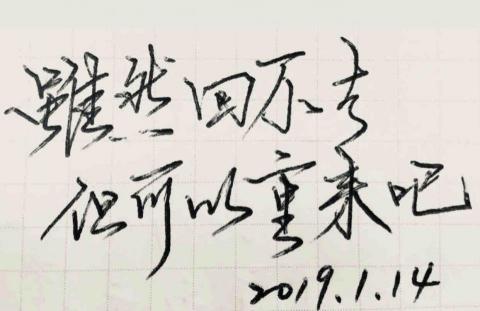 雖然回不去
但可以重来吧
2019.1.14